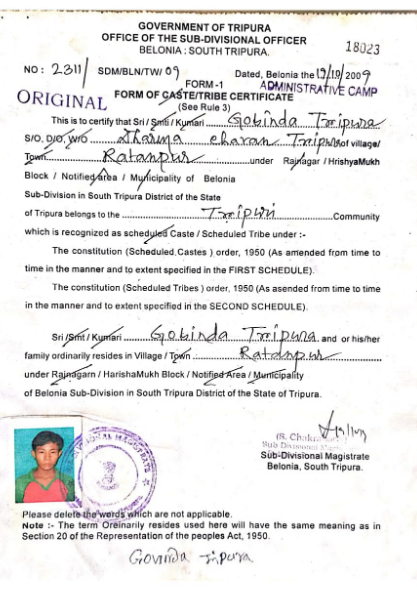 GOVERNMENT OF TRIPURA
OFFICE OF THE SUB-DIVISIONAL OFFICER
BELONIA : SOUTH TRIPURA.
18023
NO : 2311/ SDM/BLN/TW/ 09 Dated, Belonia the 19/10/2009
FORM -1 ADMINISTRATIVE CAMP
ORIGINAL FORM OF CASTE/TRIBE CERTIFICATE
(See Rule 3)
This is to certify that Sri / Smti / Kumari Gobinda Tripura
S/O, D/O, W/O Dharma charan Tripura of village/
Town Ratanpur under Rajnagar / HrishyaMukh
Block / Notified area / Municipality of Belonia
Sub-Division in South Tripura District of the State
of Tripura belongs to the Tripuri Community
which is recognized as scheduled Caste / Scheduled Tribe under :-
The constitution (Scheduled Castes ) order, 1950 (As amended from time to
time in the manner and to extent specified in the FIRST SCHEDULE).
The constitution (Scheduled Tribes ) order, 1950 (As asended from time to time
in the manner and to extent specified in the SECOND SCHEDULE).
Sri /Smt / Kumari Gobinda Tripura and or his/her
family ordinarily resides in Village / Town Ratanpur
under Rajnagarn / HarishaMukh Block / Notified Area / Municipality
of Belonia Sub-Division in South Tripura District of the State of Tripura.
Sub-Divisional Magistrate
Belonia, South Tripura.
Please delete the words which are not applicable.
Note :- The term Oreinarily resides used here will have the same meaning as in
Section 20 of the Representation of the peoples Act, 1950.
Govinda Tripura